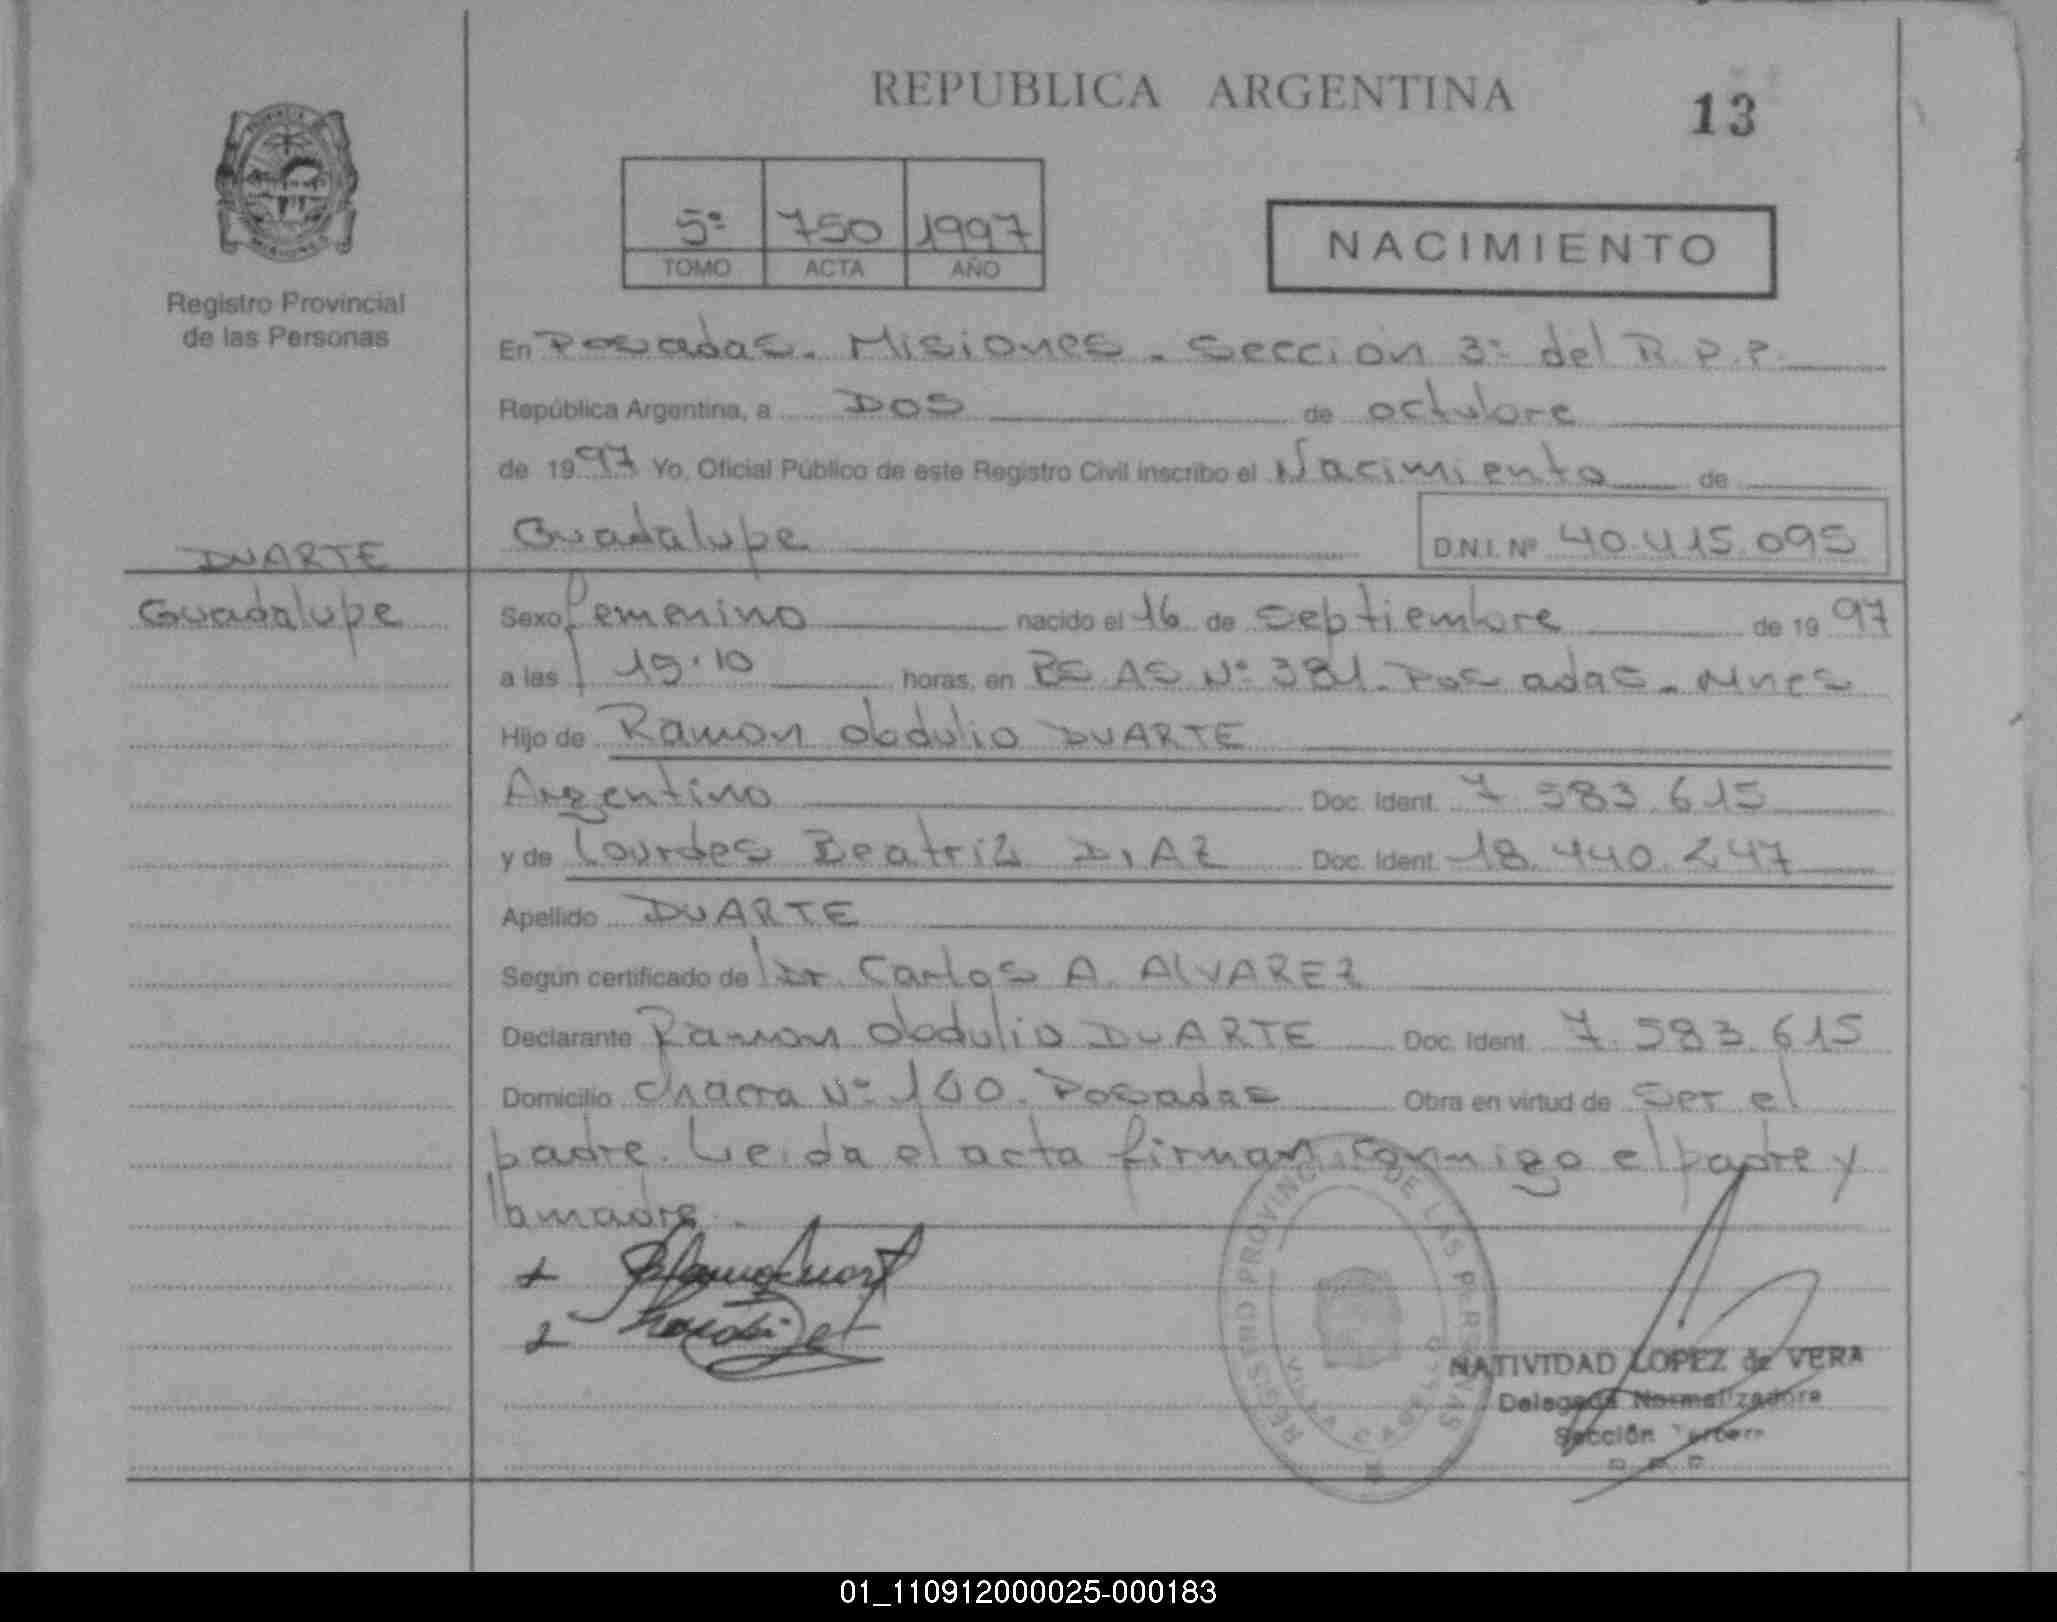 REPUBLICA ARGENTINA
13
5º 750 1997
TOMO ACTA AÑO
NACIMIENTO
Registro Provincial
de las Personas
En Posadas. Misiones. Sección 3º del R.P.P.
República Argentina, a Dos de octubre
de 1997 Yo, Oficial Público de este Registro Civil inscribo el Nacimiento de
Guadalupe D.N.I. Nº 40.415.095
DUARTE
Guadalupe
Sexo femenino nacido el 16 de septiembre de 1997
a las 19.10 horas, en BS AS Nº 381. Posadas. Mnes
Hijo de Ramon obdulio DUARTE
Argentino Doc. Ident. 7.583.615
y de Lourdes Beatriz DIAZ Doc. Ident. 18.440.247
Apellido DUARTE
Según certificado de Dr. Carlos A. AlVAREZ
Declarante Ramon Obdulio DUARTE Doc. Ident. 7.583.615
Domicilio chacra Nº 100. Posadas Obra en virtud de ser el
padre. Leida el acta firman conmigo el padre y
la madre.
REGISTRO PROVINCIAL DE LAS PERSONAS
NATIVIDAD LOPEZ de VERA
Delegada Normalizadora
Sección Tercera
01_110912000025-000183